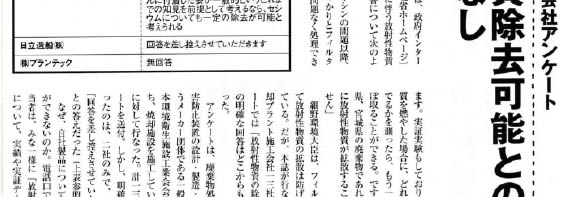 会社アンケート
質除去可能との
なし
ルに付着した姿が一般的というこれま
での知見を前提として考えるなら、セシ
ウムについても一定の除去が可能と
考えられる
日立造船㈱
回答を差し控えさせていただきます
㈱プランテック
無回答
は、政府インター
省ホームページ）
に伴う放射性物質
答について次のよ
シンの問題以降、
かりとフィルタ
問題なく処理でき
ます。実証実験もしており
質を燃やした場合に、どれ
でるかを測ったら、もう一
ぼ取ることができる。です
県、宮城県の廃棄物であれ
に放射性物質が拡散するこ
せん」
細野環境大臣は、フィル
て放射性物質の拡散は防げ
ている。だが、本誌が行な
却プラント施工会社一三社
ートでは「放射性物質の除
の明確な回答はどこからも
った。
アンケートは、廃棄物処
害防止装置の設計・製造・
うメーカー団体である一般
本環境衛生施設工業会会
ち、焼却施設を施工してい
に対して行なった。計一三
ートを送付。しかし、明確
ったのは、二社のみで、
「回答を差し控えさせてい
との答えだった（上表参照
なぜ、自社製品について
ができないのか。電話口で
当者は、みな一様に「放射
について、実績や実証デ